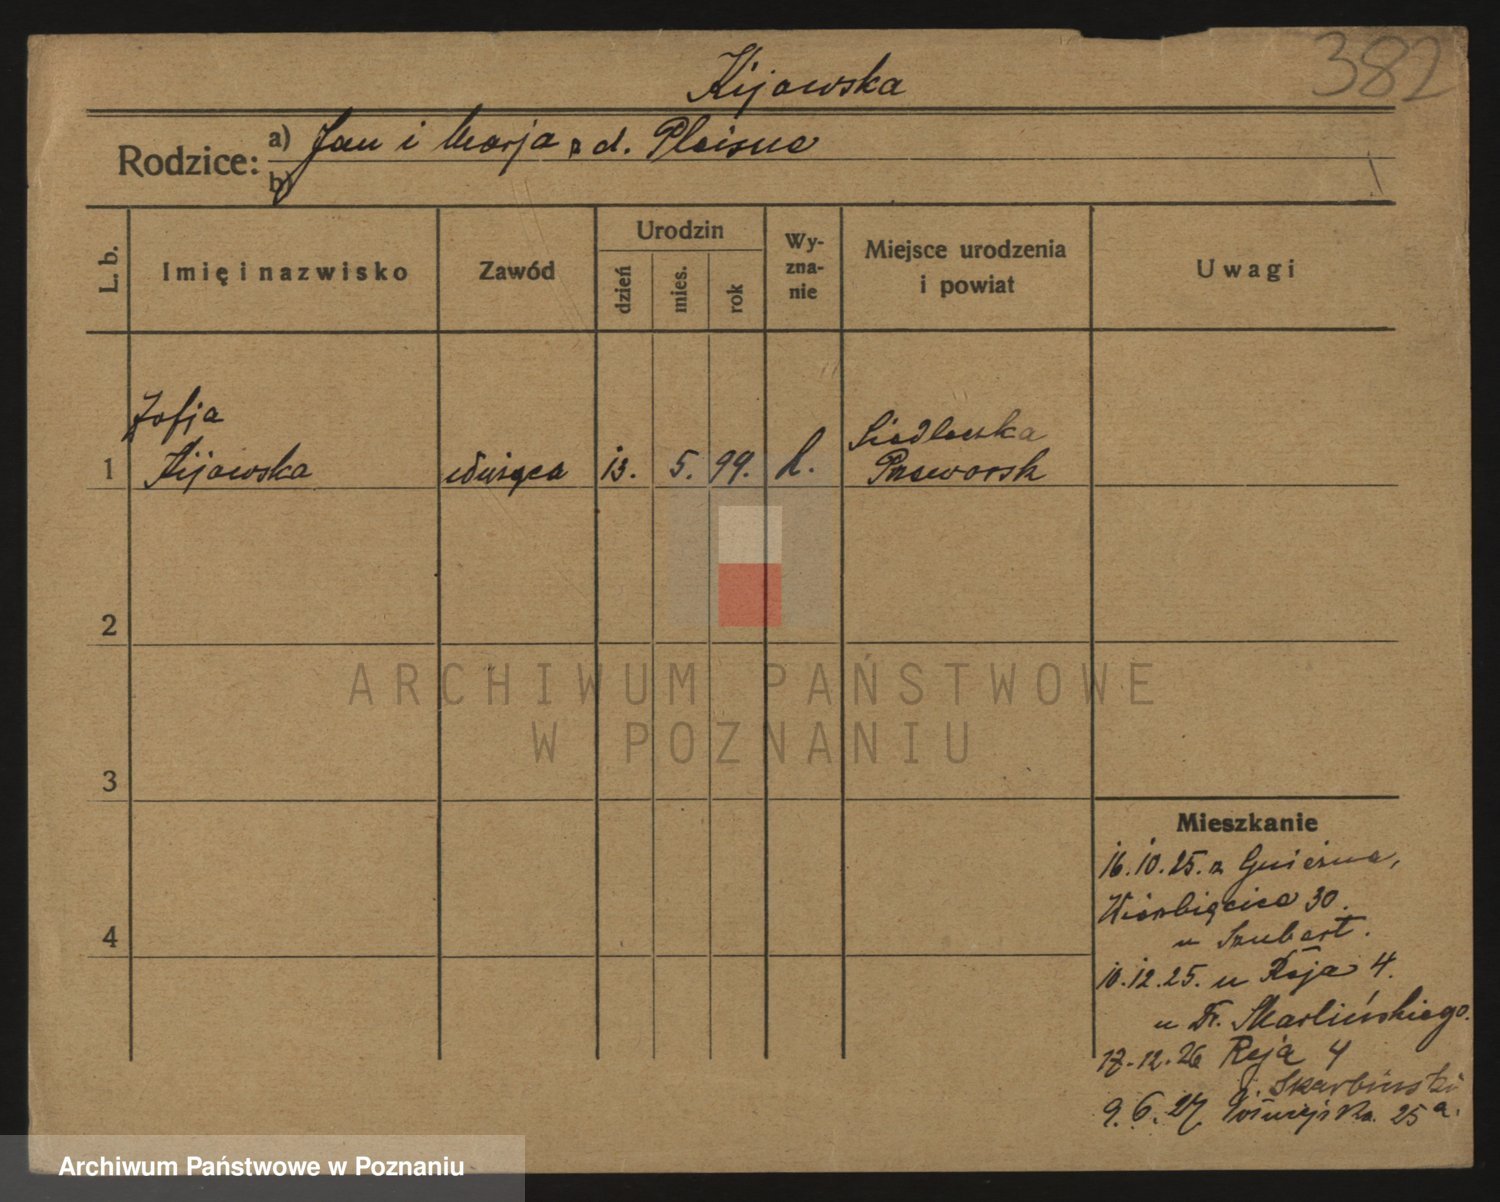 382
Kijowska
Rodzice:
a) Jan i Marja z d. Pleisne
b)
L. b.
Imię i nazwisko
Zawód
Urodzin
dzień
mies.
rok
Wy-
zna-
nie
Miejsce urodzenia
i powiat
Uwagi
Zofja
1 Kijowska służąca 13. 5. 99. k.
Siedleczka
Przeworsk
2
3
4
ARCHIWUM PAŃSTWOWE
W POZNANIU
Mieszkanie
16.10.25. z Gniezna,
Wierzbięcice 30.
u Szubert.
10.12.25. u Reja 4.
u Dr.
17.12.26 Reja 4
Skarbinski
9.6.27 25a.
Archiwum Państwowe w Poznaniu